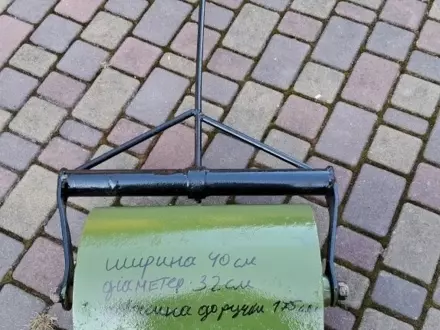 ширина 40см
диаметр 32см
до ручки 175см